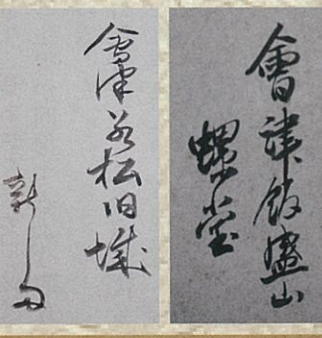 會津飯盛山
螺堂
會津若松旧城